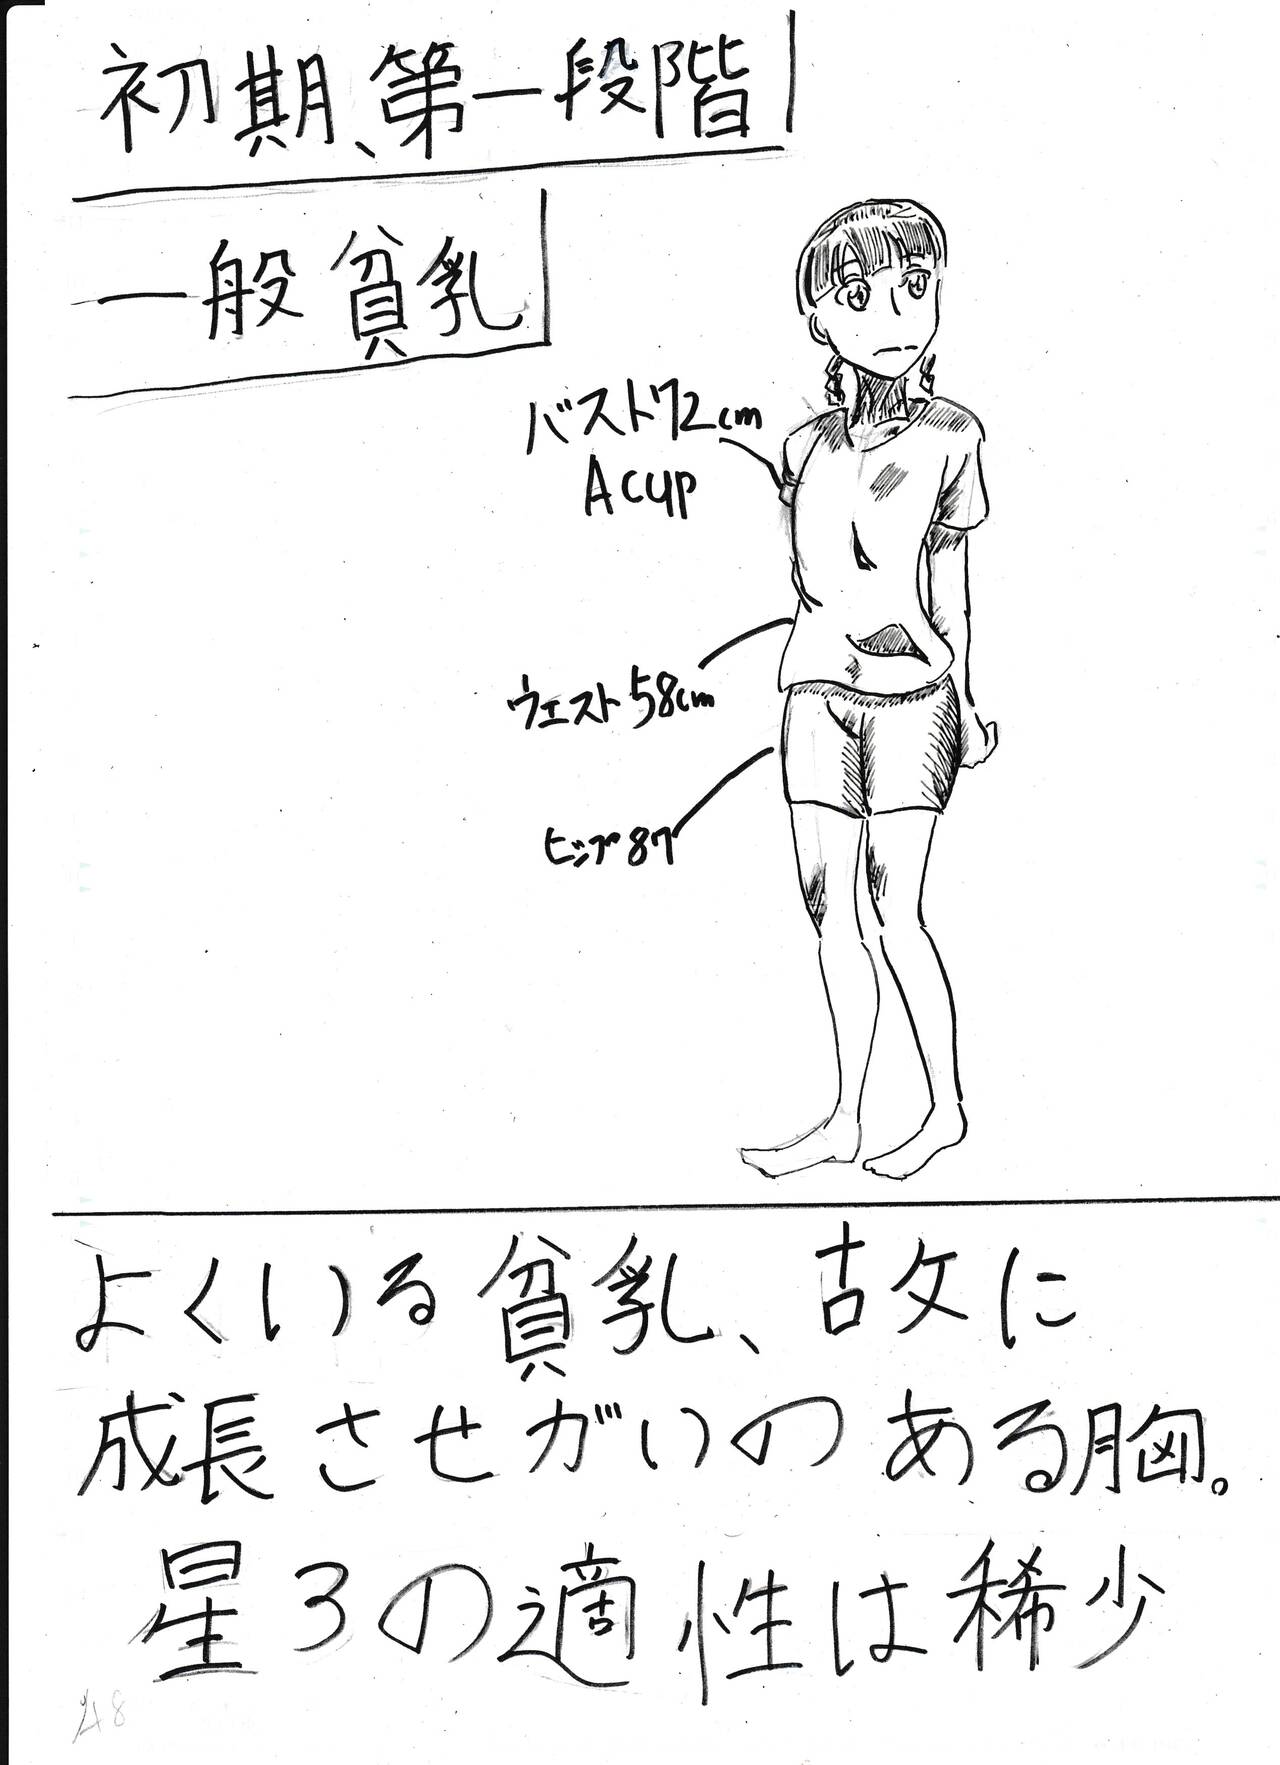 初期、第一段階
一般貧乳
バスト72cm
Acup
ウェスト58cm
ヒップ87
よくいる貧乳、故に
成長させがいのある胸。
星3の適性は稀少
48